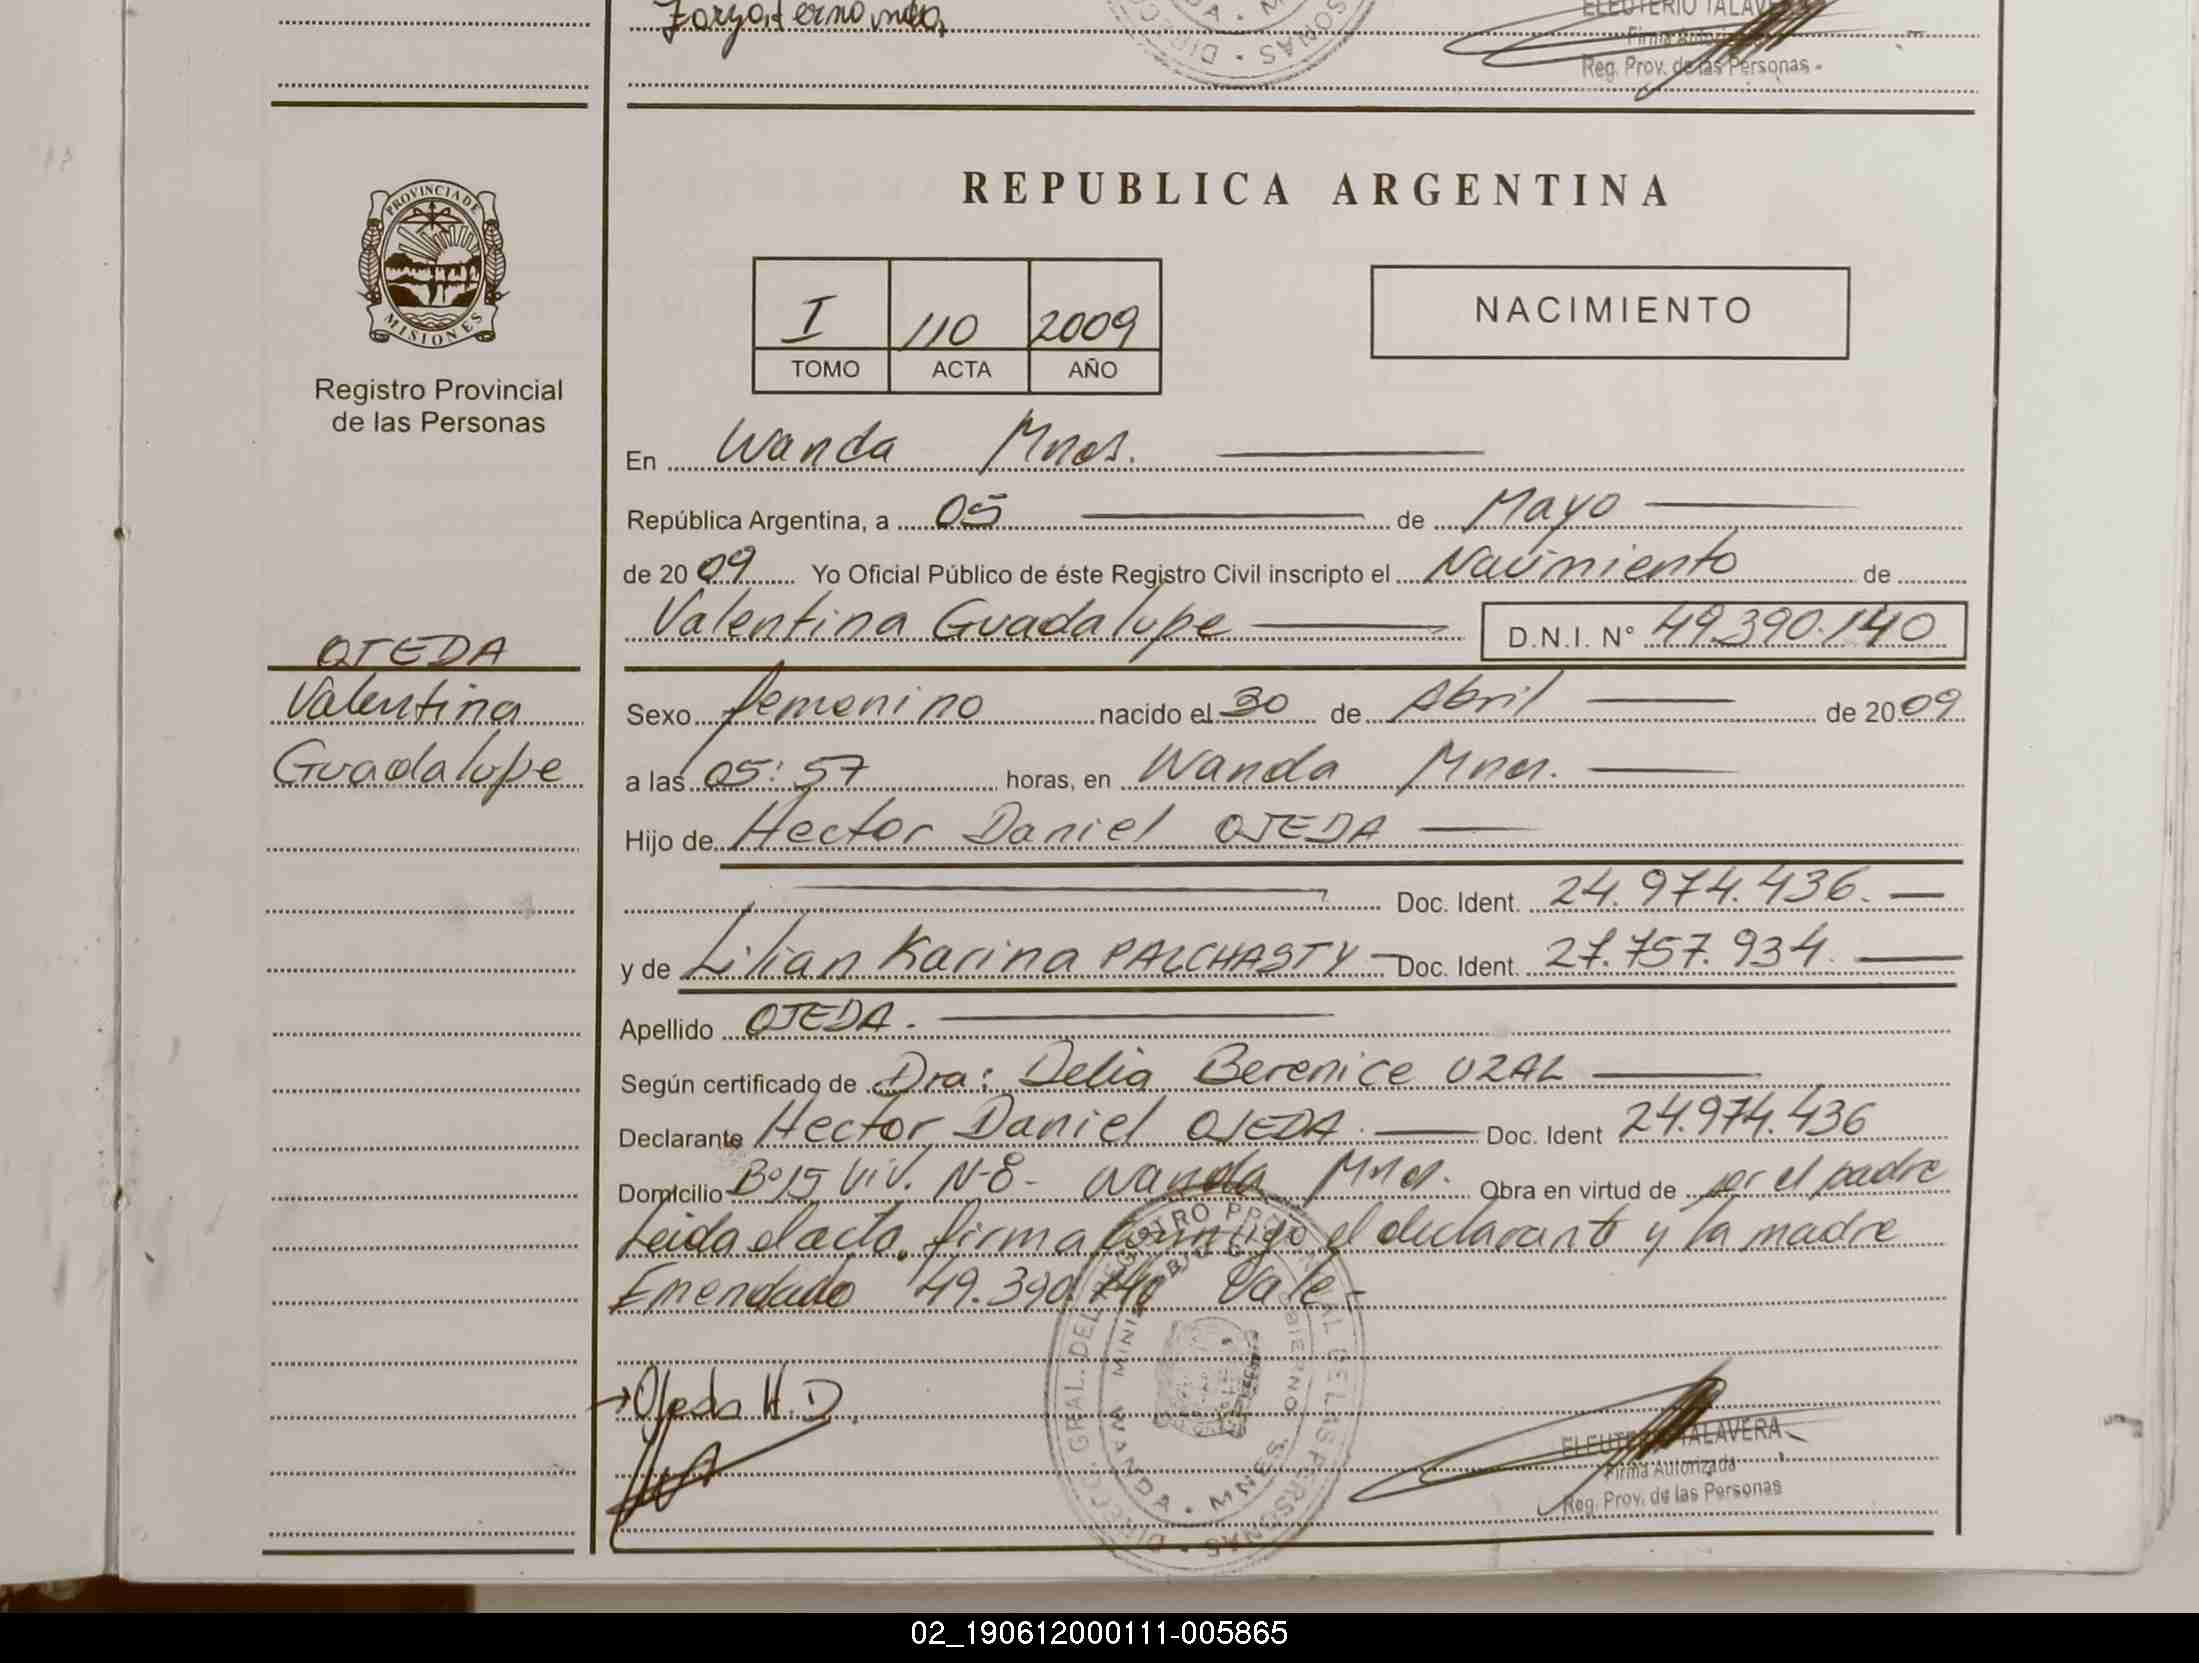 Zarza, Fernanda
ELEUTERIO TALAVERA
Firma Autorizada
Reg. Prov. de las Personas
PROVINCIA DE
MISIONES
Registro Provincial
de las Personas
OJEDA
Valentina
Guadalupe
REPUBLICA ARGENTINA
I 110 2009
TOMO ACTA AÑO
NACIMIENTO
En Wanda Mnes.
República Argentina, a 05 de Mayo
de 2009 Yo Oficial Público de éste Registro Civil inscripto el Nacimiento de
Valentina Guadalupe D.N.I. N° 49.390.140
Sexo femenino nacido el 30 de Abril de 2009
a las 05:57 horas, en Wanda Mnes.
Hijo de Hector Daniel OJEDA
Doc. Ident. 24.974.436.
y de Lilian Karina PALCHASTY Doc. Ident. 27.757.934.
Apellido OJEDA.
Según certificado de Dra: Delia Berenice UZAL
Declarante Hector Daniel OJEDA. Doc. Ident 24.974.436
Domicilio B° 15 Viv. N-8- Wanda Mnes. Obra en virtud de por el padre
Leida el acta, firma conmigo el declarante y la madre
Emendado 49.390.140 Vale-
Ojeda H.D.
DIRECC. GRAL. DEL REGISTRO PROVINCIAL DE LAS PERSONAS
MINISTERIO DE GOBIERNO
WANDA • MNES.
ELEUTERIO TALAVERA
Firma Autorizada
Reg. Prov. de las Personas
02_190612000111-005865